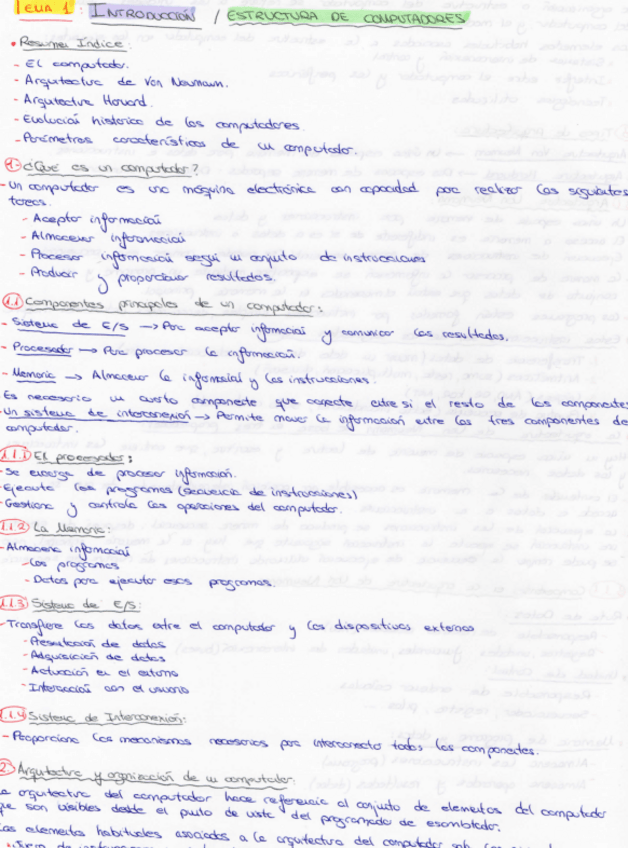 TEMA 1: INTRODUCCIÓN / ESTRUCTURA DE COMPUTADORES
• Resumen Índice:
- El computador.
- Arquitectura de Von Neumann.
- Arquitectura Harvard.
- Evolución histórica de los computadores.
- Parámetros característicos de un computador.
1- ¿Qué es un computador?
- Un computador es una máquina electrónica con capacidad para realizar las siguientes
tareas.
- Aceptar información
- Almacenar información
- Procesar información según un conjunto de instrucciones
- Producir y proporcionar resultados.
1.1 Componentes principales de un computador:
- Sistema de E/S → Para aceptar información y comunicar los resultados.
- Procesador → Para procesar la información.
- Memoria → Almacenar la información y las instrucciones.
Es necesario un cuarto componente que conecte entre si el resto de los componentes
- Un sistema de interconexión → Permite mover la información entre los tres componentes del
computador.
1.1.1 El procesador:
- Se encarga de procesar información.
- Ejecuta los programas (secuencia de instrucciones)
- Gestiona y controla las operaciones del computador.
1.1.2 La Memoria:
- Almacena información
- Los programas
- Datos para ejecutar esos programas.
1.1.3 Sistema de E/S:
- Transfiere los datos entre el computador y los dispositivos externos
- Presentación de datos
- Adquisición de datos
- Actuación en el entorno
- Interacción con el usuario
1.1.4 Sistema de Interconexión:
- Proporciona los mecanismos necesarios para interconectar todos los componentes.
2 Arquitectura y organización de un computador:
La arquitectura del computador hace referencia al conjunto de elementos del computador
que son visibles desde el punto de vista del programador de ensamblador.
Los elementos habituales asociados a la arquitectura del computador son